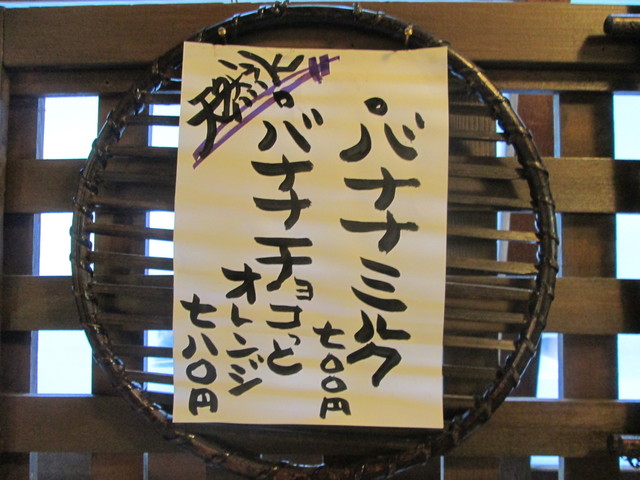 •バナナミルク
七〇〇円
•バナナチョコっと
オレンジ
七八〇円